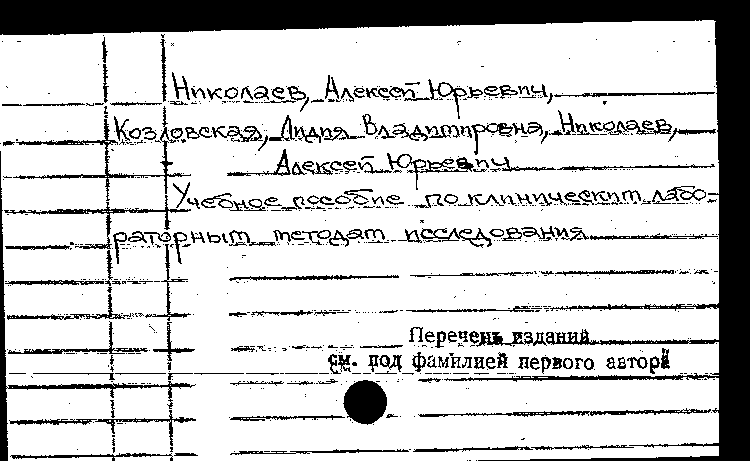 Николаев, Алексей Юрьевич,
Козловская, Лидия Владимировна, Николаев,
Алексей Юрьевич
Учебное пособие по клиническим лабо-
раторным методам исследования
Перечень изданий
см. под фамилией первого автора